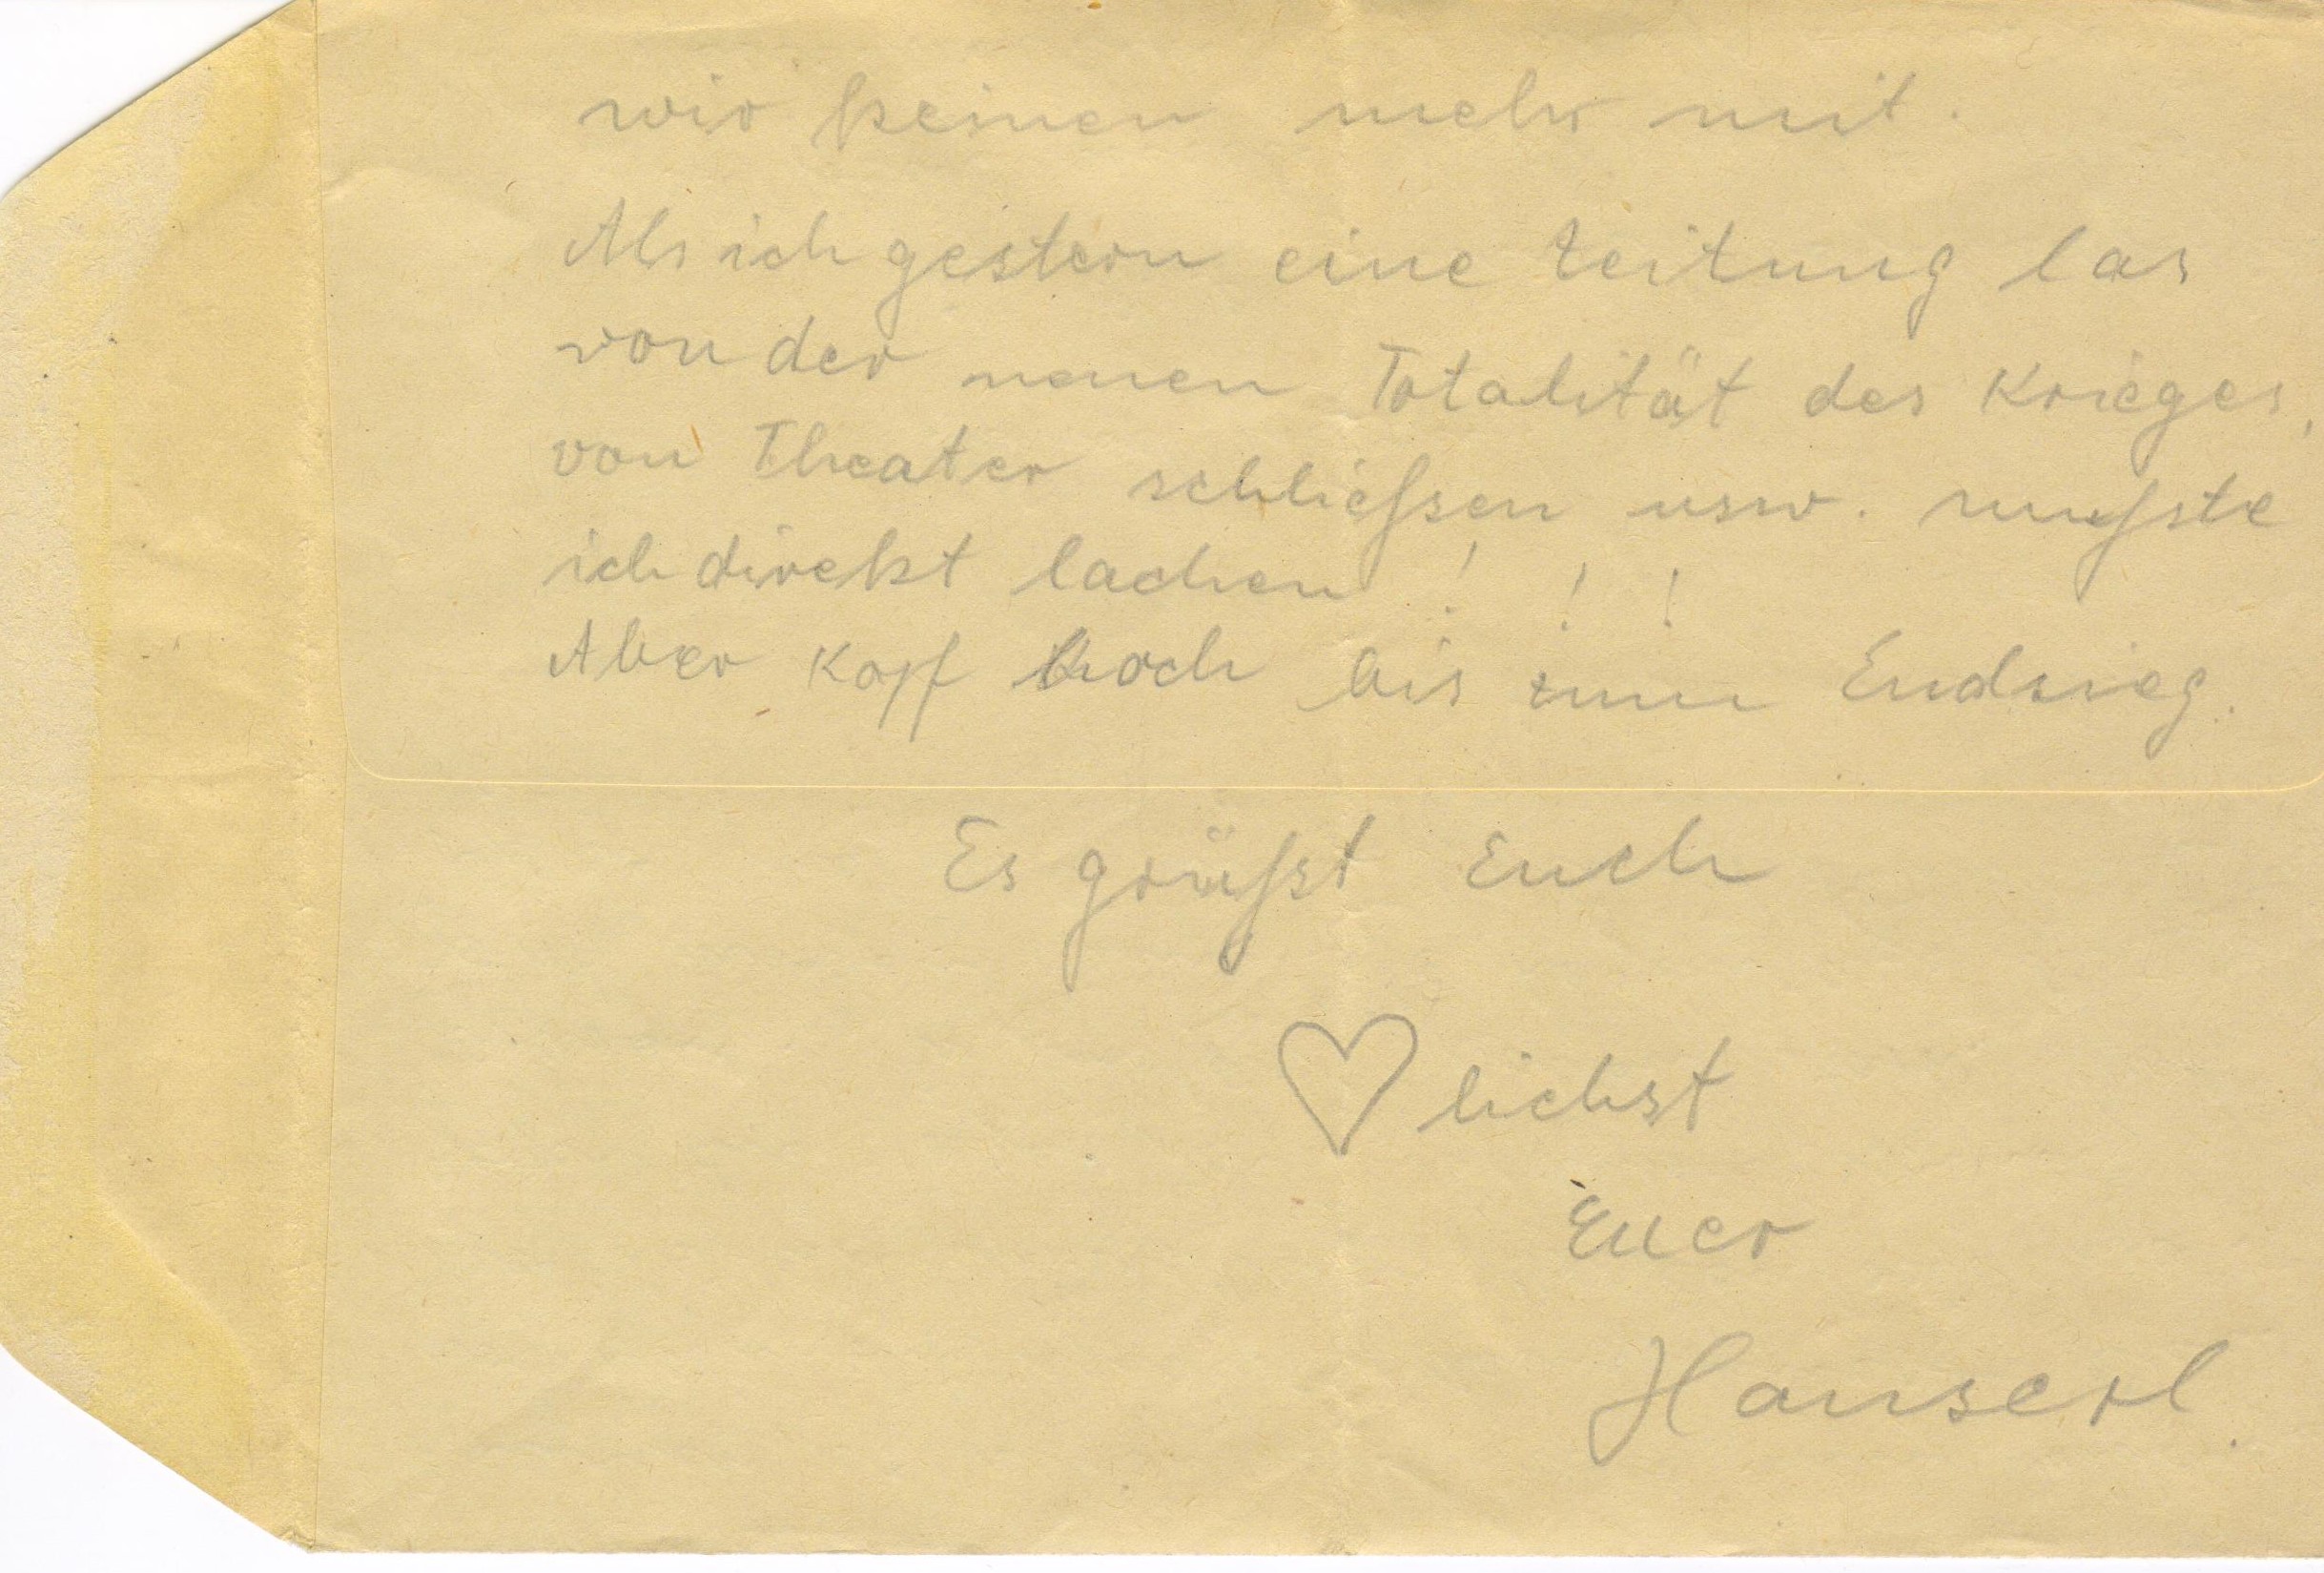 wir keinen mehr mit.
Als ich gestern eine Zeitung las
von der neuen Totalität des Krieges,
von Theater schließsen usw. mußste
ich direkt lachen ! ! !
Aber Kopf hoch bis zum Endsieg.
Es grüßst Euch
♡lichst
Euer
Hanserl.